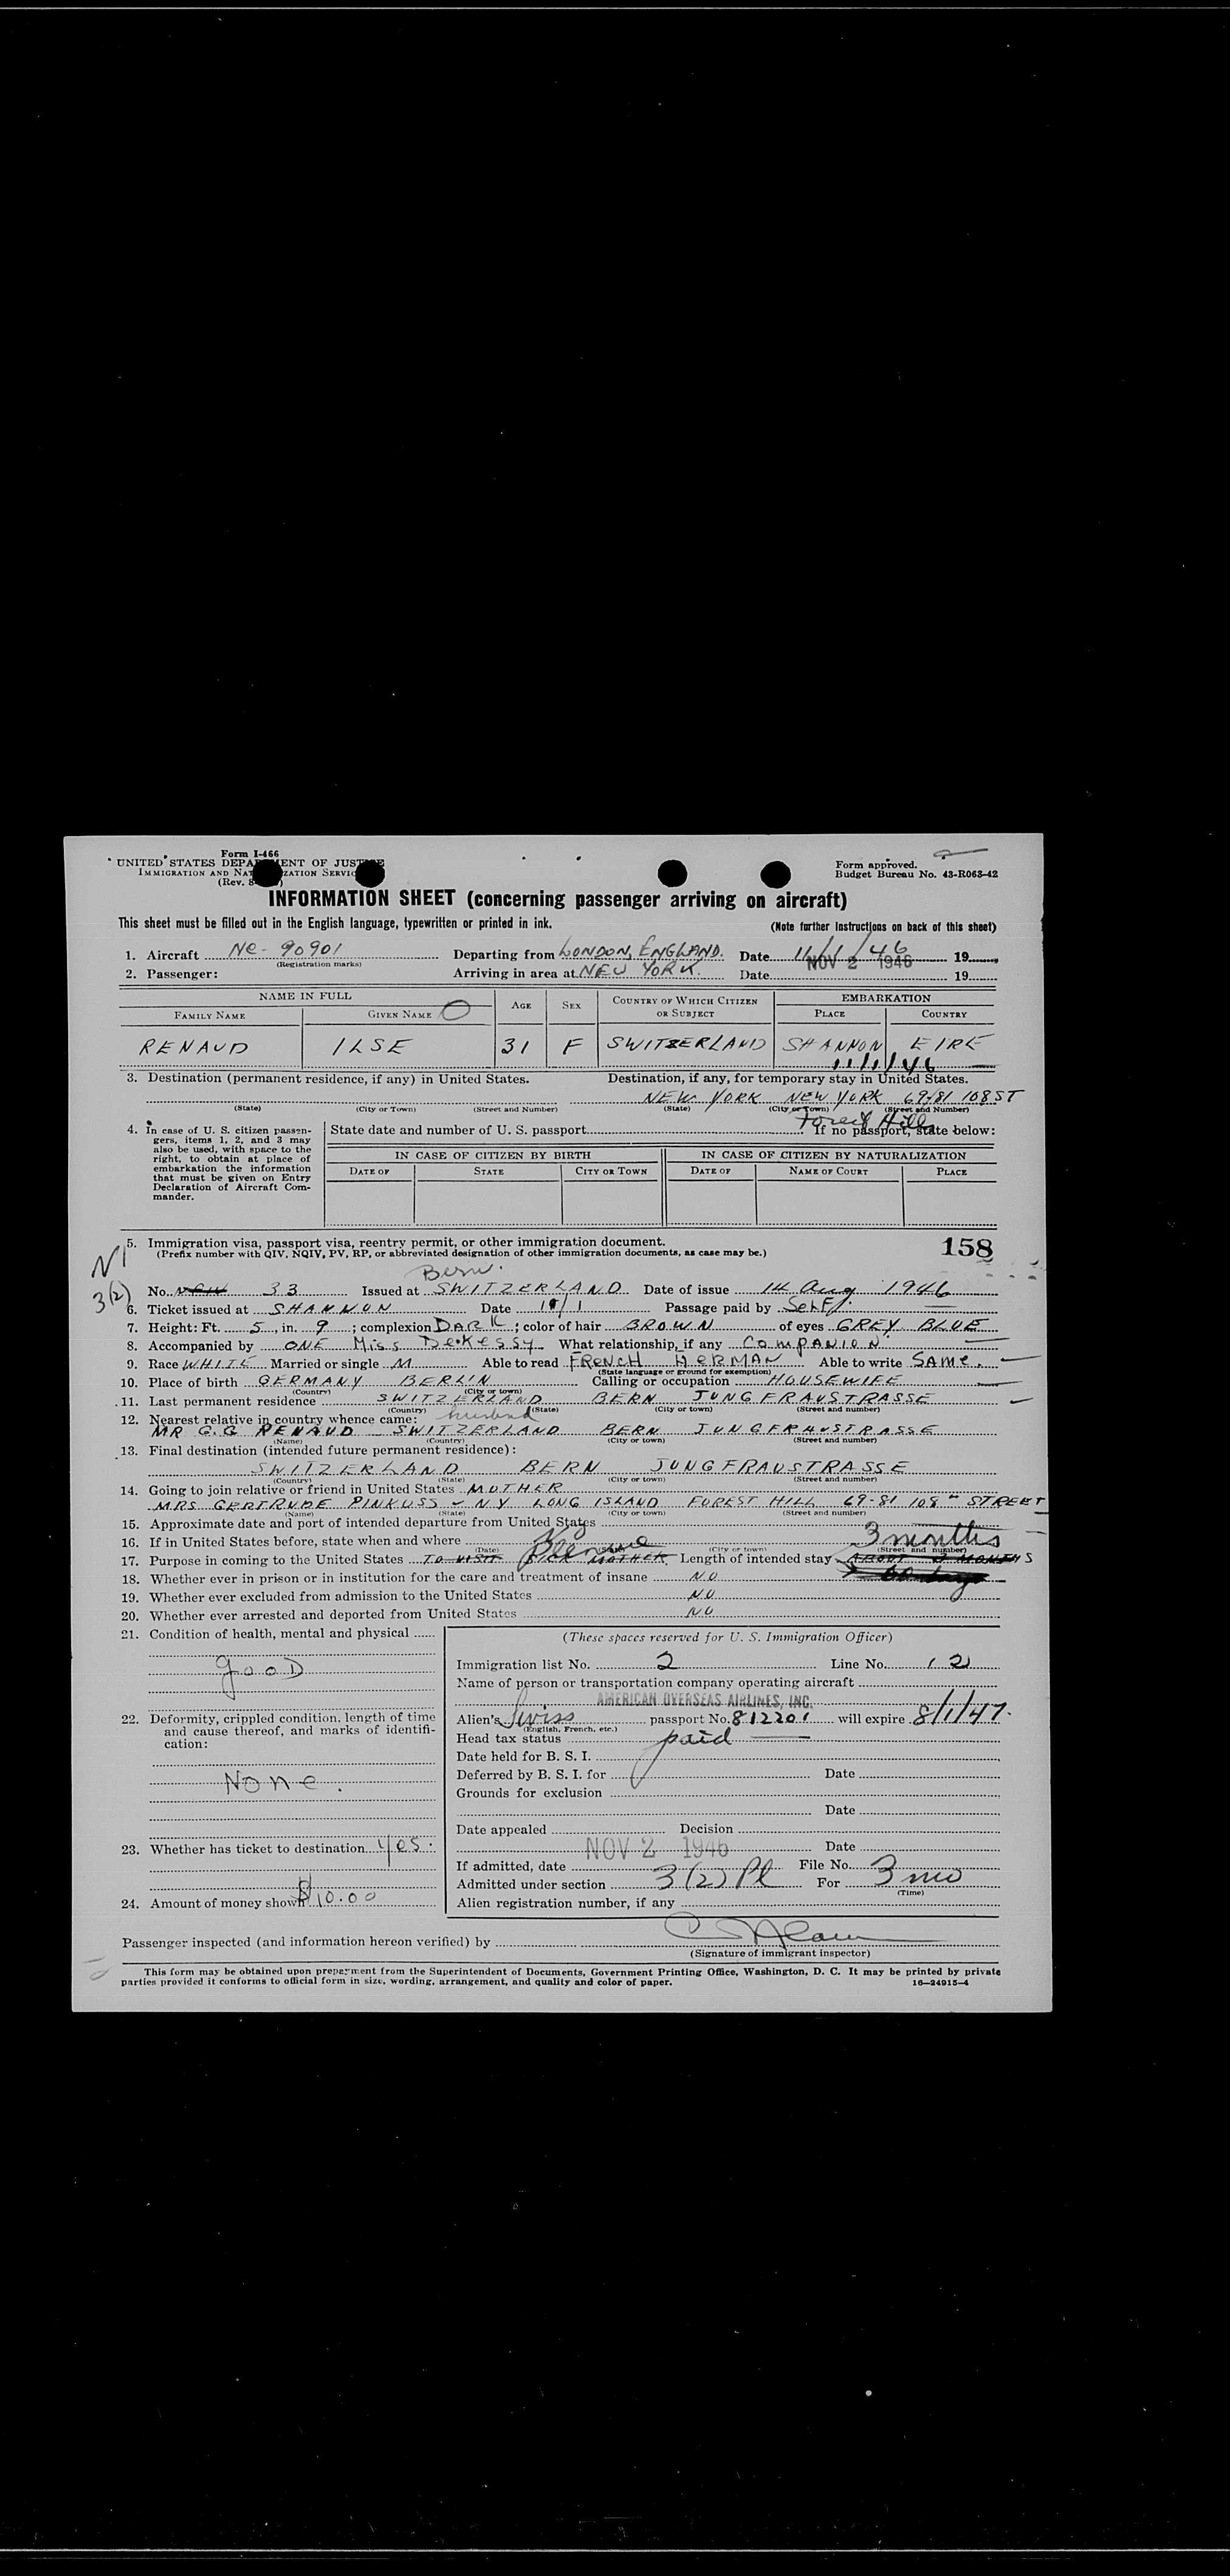 Form I-466
UNITED STATES DEPARTMENT OF JUSTICE
IMMIGRATION AND NATURALIZATION SERVICE
(Rev.
Form approved.
Budget Bureau No. 43-R063-42
INFORMATION SHEET (concerning passenger arriving on aircraft)
This sheet must be filled out in the English language, typewritten or printed in ink.
(Note further instructions on back of this sheet)
1. Aircraft NC- 90901 Departing from LONDON, ENGLAND. Date 11/1/46 19
(Registration marks)
2. Passenger: Arriving in area at NEW YORK. Date NOV 2 1946 19
NAME IN FULL AGE SEX COUNTRY OF WHICH CITIZEN OR SUBJECT EMBARKATION
FAMILY NAME GIVEN NAME PLACE COUNTRY
RENAUD ILSE 31 F SWITZERLAND SHANNON EIRE
11/1/46
3. Destination (permanent residence, if any) in United States. Destination, if any, for temporary stay in United States.
NEW YORK NEW YORK 69-81 108 ST
(State) (City or Town) (Street and Number) (State) (City or Town) (Street and Number)
Forest Hills
4. In case of U. S. citizen passengers, items 1, 2, and 3 may also be used, with space to the right, to obtain at place of embarkation the information that must be given on Entry Declaration of Aircraft Commander.
State date and number of U. S. passport If no passport, state below:
IN CASE OF CITIZEN BY BIRTH IN CASE OF CITIZEN BY NATURALIZATION
DATE OF STATE CITY OR TOWN DATE OF NAME OF COURT PLACE
5. Immigration visa, passport visa, reentry permit, or other immigration document.
(Prefix number with QIV, NQIV, PV, RP, or abbreviated designation of other immigration documents, as case may be.)
158
N1
3(2)
Bern.
No. 33 Issued at SWITZERLAND Date of issue 14 Aug 1946
6. Ticket issued at SHANNON Date 11/1 Passage paid by Self.
7. Height: Ft. 5, in. 9; complexion DARK; color of hair BROWN of eyes GREY BLUE
8. Accompanied by ONE Miss Dekessy What relationship, if any COMPANION
9. Race WHITE Married or single M Able to read FRENCH HERMAN Able to write SAME.
(State language or ground for exemption)
10. Place of birth GERMANY BERLIN Calling or occupation HOUSEWIFE
(Country) (City or town)
11. Last permanent residence SWITZERLAND BERN JUNGFRAUSTRASSE
(Country) (State) (City or town) (Street and number)
12. Nearest relative in country whence came: husband
MR G.G RENAUD SWITZERLAND BERN JUNGFRAUSTRASSE
(Name) (Country) (City or town) (Street and number)
13. Final destination (intended future permanent residence):
SWITZERLAND BERN JUNGFRAUSTRASSE
(Country) (State) (City or town) (Street and number)
14. Going to join relative or friend in United States MOTHER
MRS GERTRUDE PINKUSS - N.Y LONG ISLAND FOREST HILL 69-81 108TH STREET
(Name) (State) (City or town) (Street and number)
15. Approximate date and port of intended departure from United States
16. If in United States before, state when and where No
(Date) (State) (City or town) (Street and number)
3 months
17. Purpose in coming to the United States TO VISIT HER MOTHER Pleasure Length of intended stay ABOUT 3 MONTHS
60 days
18. Whether ever in prison or in institution for the care and treatment of insane NO
19. Whether ever excluded from admission to the United States NO
20. Whether ever arrested and deported from United States NO
21. Condition of health, mental and physical
gooD
22. Deformity, crippled condition, length of time and cause thereof, and marks of identification:
None.
23. Whether has ticket to destination yes.
24. Amount of money shown $10.00
(These spaces reserved for U. S. Immigration Officer)
Immigration list No. 2 Line No. 12
Name of person or transportation company operating aircraft
AMERICAN OVERSEAS AIRLINES, INC.
Alien's Swiss passport No. 812201 will expire 8/1/47.
(English, French, etc.)
Head tax status paid
Date held for B. S. I.
Deferred by B. S. I. for Date
Grounds for exclusion
Date
Date appealed Decision
NOV 2 1946 Date
If admitted, date File No.
Admitted under section 3(2) Pl For 3 mo
(Time)
Alien registration number, if any
Passenger inspected (and information hereon verified) by
(Signature of immigrant inspector)
This form may be obtained upon prepayment from the Superintendent of Documents, Government Printing Office, Washington, D. C. It may be printed by private
parties provided it conforms to official form in size, wording, arrangement, and quality and color of paper.
16—24915-4